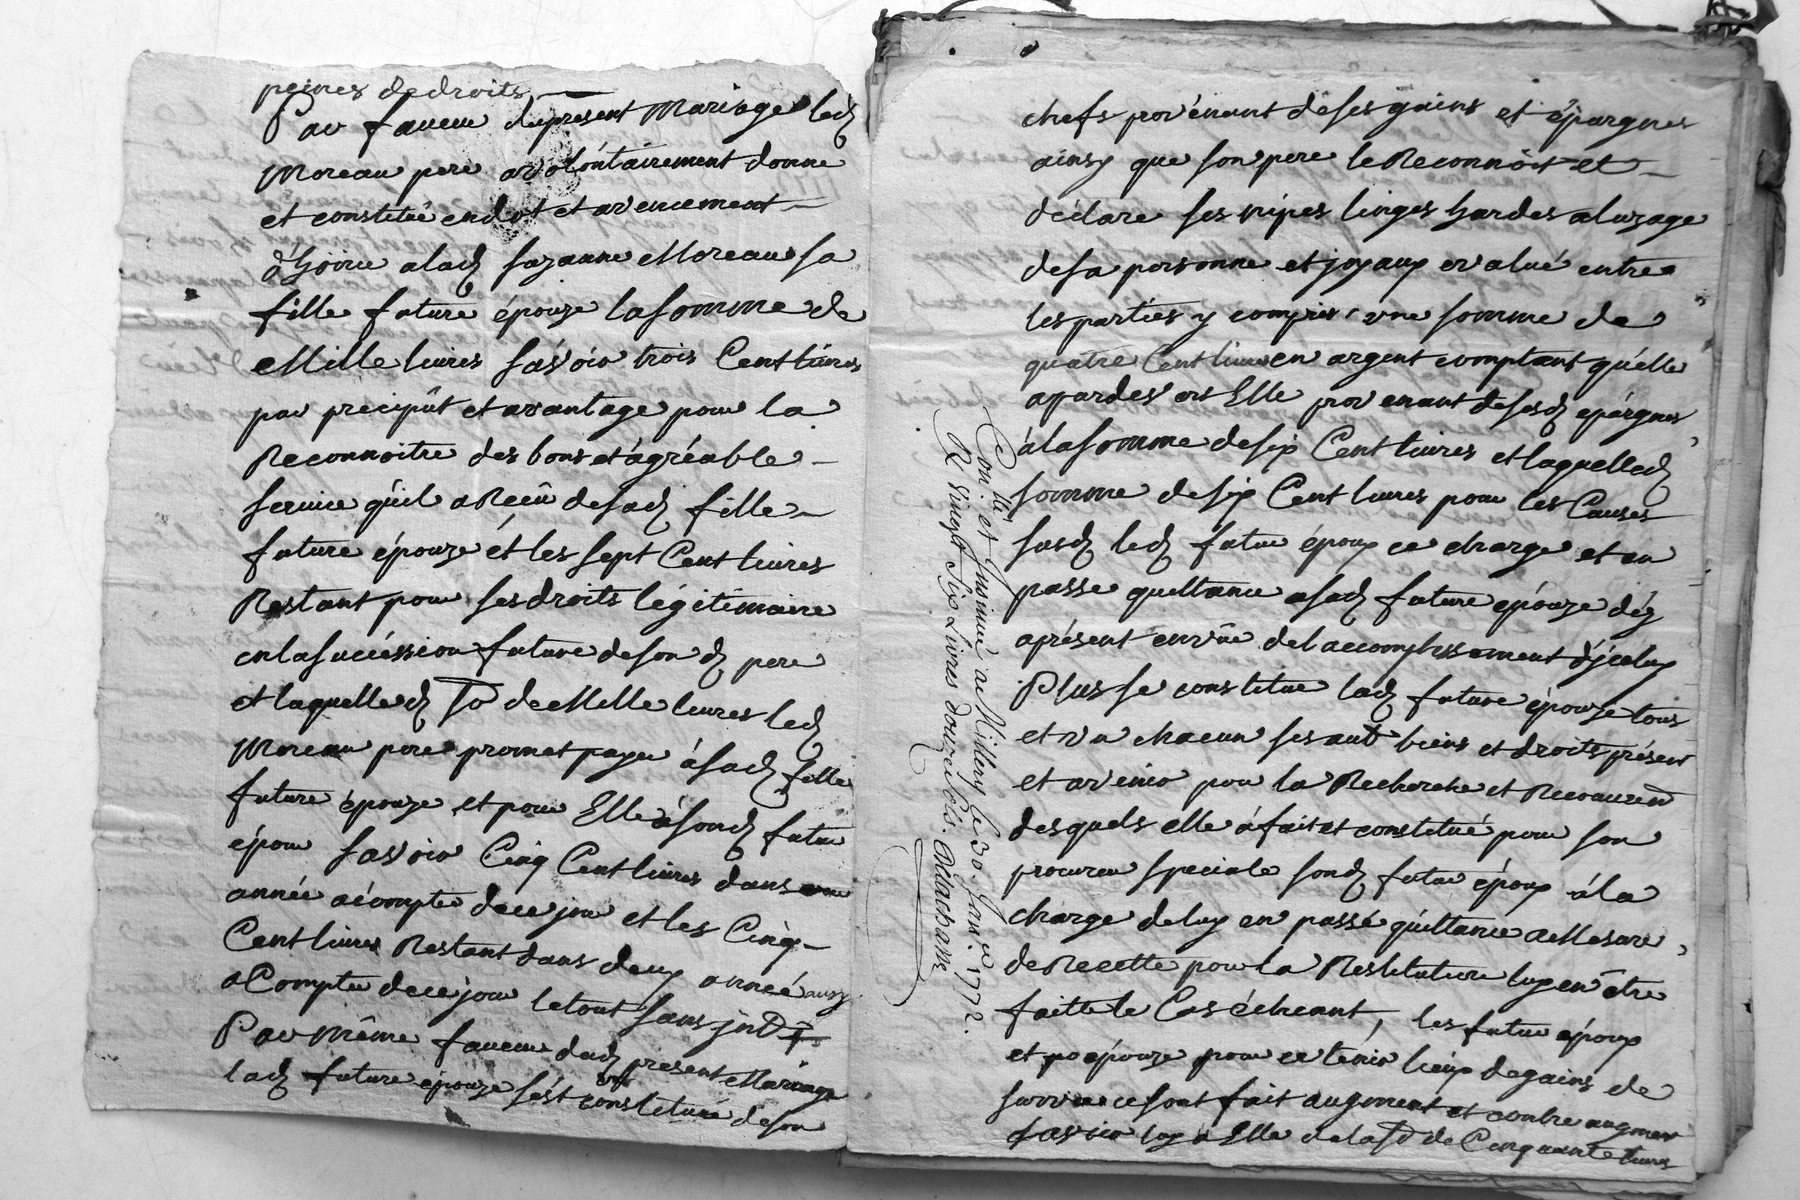 peines de droits
Par faveur du présent Mariage led
Moreau pere a volontairement donné
et constitué en dot et avencement
d'hoirie a lad Suzanne Moreau sa
fille future épouze la somme de
Mille livres sasvoir trois Cent livres
par precipût et avantage pour la
Reconnoitre des bons et agréable
service qu'il a Reçû de sad fille
future épouze et les sept Cent livres
Restant pour ses droits légitimaire
en la succéssion future de son d pere
et laquelle d So de Mille livres led
Moreau pere promet payer à sad fille
future épouze et pour Elle à sond futur
époux sasvoir Cinq Cent livres dans une
année a compter de ce jour et les Cinq
Cent livres Restant dans deux année aussy
a Compter de ce jour le tout sans jnt
Par même faveur dud present Mariage
lad future épouze s'est constituée de son
chefs provénant de ses gains et épargnes
ainsy que son pere le Reconnoit et
déclare ses nipes linges hardes a luzage
de sa personne et joyaux evalué entre
les parties y compris une somme de
quatre Cent livres en argent comptant qu'elle
a pardevers Elle provenant de sesd epárgnes
à la somme de six Cent livres et laquelle d
somme de six Cent livres pour les Causes
susd led futur époux ce charge et en
passe quittance a sad future épouze déz
aprésent en vüe de l'accomplissement d'jceluy
Plus se constitue lad future épouze tous
et un chacun ses aut biens et droits présent
et avenir pour la Recherche et Recouvrem
desquels elle à fait et constitué pour son
procureur speciale sond futur époux à la
charge de luy en passé quittance a Mesure
de Recette pour la Restitution luy en être
faitte le Cas échéant, les futur époux
et épouze pour ce tenir lieux de gains de
survie ce sont fait augment et contre augment
sasvoir luy a Elle de la So de Cinquante livres
Con.lé et Insinué a Millery le 30. Janv.er 1772.
R Vingt Six Livres douze sols.